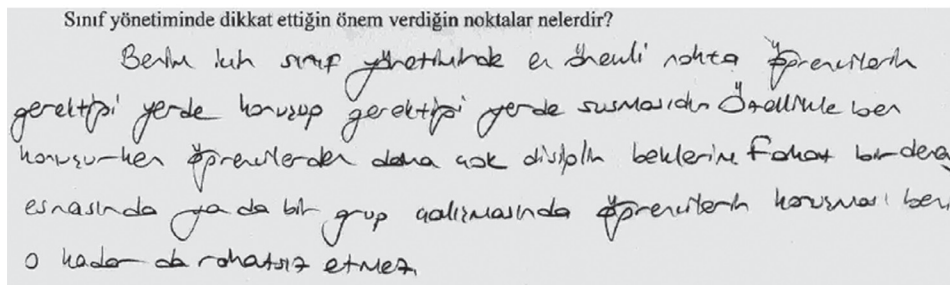 Sınıf yönetiminde dikkat ettiğin önem verdiğin noktalar nelerdir?
Benim için sınıf yönetiminde en önemli nokta öğrencilerin
gerektiği yerde konuşup gerektiği yerde susmasıdır Özellikle ben
konuşurken öğrencilerden daha çok disiplin beklerim. Fakat bir deney
esnasında ya da bir grup çalışmasında öğrencilerin konuşması beni
o kadar da rahatsız etmez.